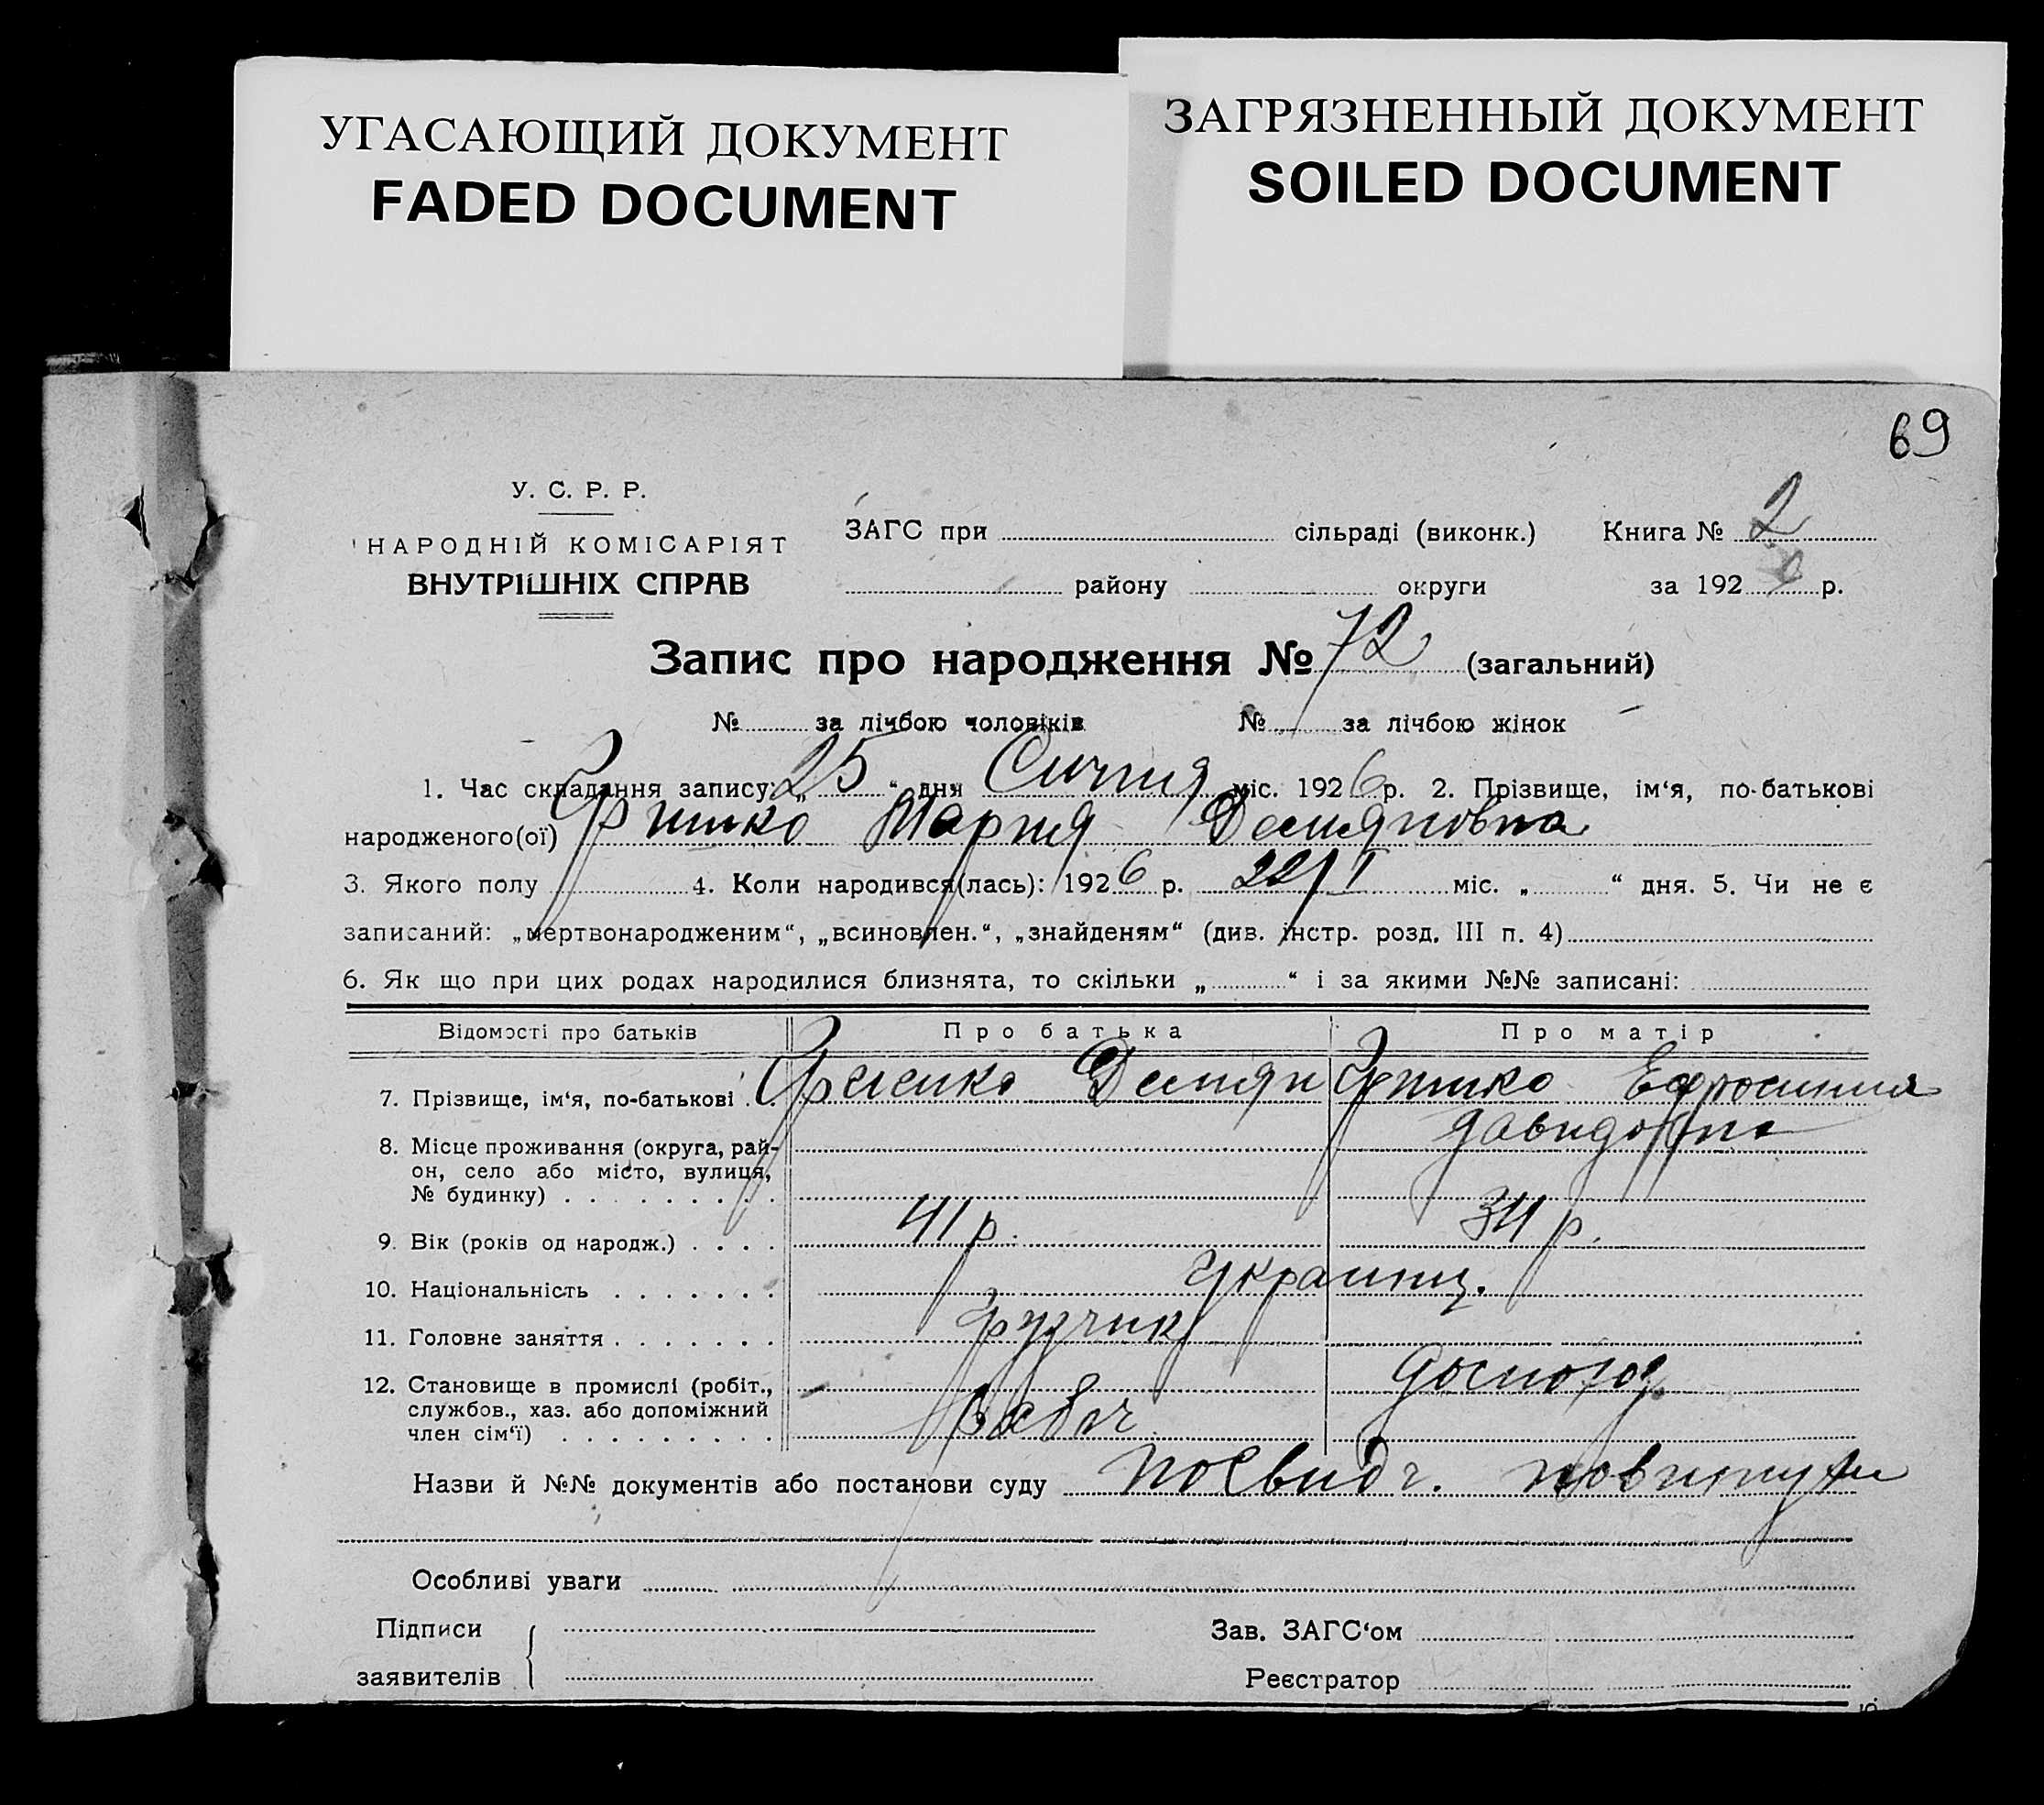 УГАСАЮЩИЙ ДОКУМЕНТ
FADED DOCUMENT
ЗАГРЯЗНЕННЫЙ ДОКУМЕНТ
SOILED DOCUMENT
69
У. С. Р. Р.
НАРОДНІЙ КОМІСАРІЯТ
ВНУТРІШНІХ СПРАВ
ЗАГС при сільраді (виконк.) Книга № 2
району округи за 192 р.
Запис про народження № 72 (загальний)
№ за лічбою чоловіків № за лічбою жінок
1. Час складання запису: „25“ дня Сичня міс. 1926 р. 2. Прізвище, ім‘я, по-батькові
народженого(ої) Гришко Мария Демяновна
3. Якого полу 4. Коли народився(лась): 1926 р. 22/I міс. „ “ дня. 5. Чи не є
записаний: „мертвонародженим“, „всиновлен.“, „знайденям“ (див. інстр. розд. III п. 4)
6. Як що при цих родах народилися близнята, то скільки „ “ і за якими №№ записані:
Відомості про батьків Про батька Про матір
7. Прізвище, ім‘я, по-батькові Гришко Демян Гришко Ефросиния
Давидовна
8. Місце проживання (округа, рай-
он, село або місто, вулиця,
№ будинку)
9. Вік (років од народж.) 41 р. 34 р.
10. Національність Украинц.
11. Головне заняття Грузчик
12. Становище в промислі (робіт., Господ.
службов., хаз. або допоміжний Рабоч.
член сім‘ї)
Назви й №№ документів або постанови суду посвидч.
Особливі уваги
Підписи
заявителів
Зав. ЗАГС‘ом
Реєстратор